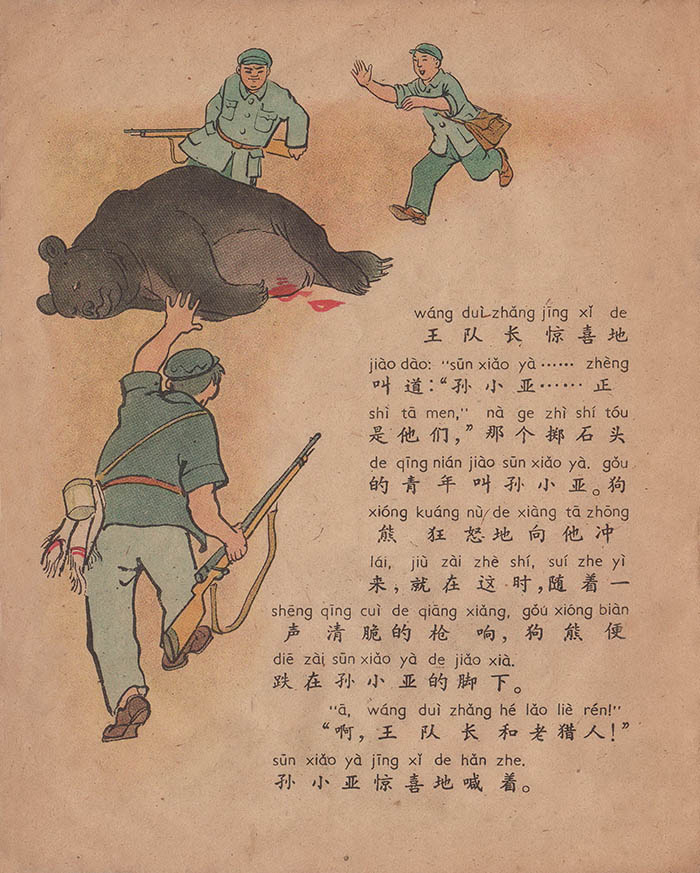 wáng duì zhǎng jīng xǐ de
王队长惊喜地
jiào dào: "sūn xiǎo yà …… zhèng
叫道:“孙小亚……正
shì tā men," nà ge zhì shí tóu
是他们,”那个掷石头
de qīng nián jiào sūn xiǎo yà. gǒu
的青年叫孙小亚。狗
xióng kuáng nù de xiàng tā zhōng
熊狂怒地向他冲
lái, jiù zài zhè shí, suí zhe yì
来,就在这时,随着一
shēng qīng cuì de qiāng xiǎng, gǒu xióng biàn
声清脆的枪响,狗熊便
diē zài sūn xiǎo yà de jiǎo xià.
跌在孙小亚的脚下。
"ā, wáng duì zhǎng hé lǎo liè rén!"
“啊,王队长和老猎人!”
sūn xiǎo yà jīng xǐ de hǎn zhe.
孙小亚惊喜地喊着。